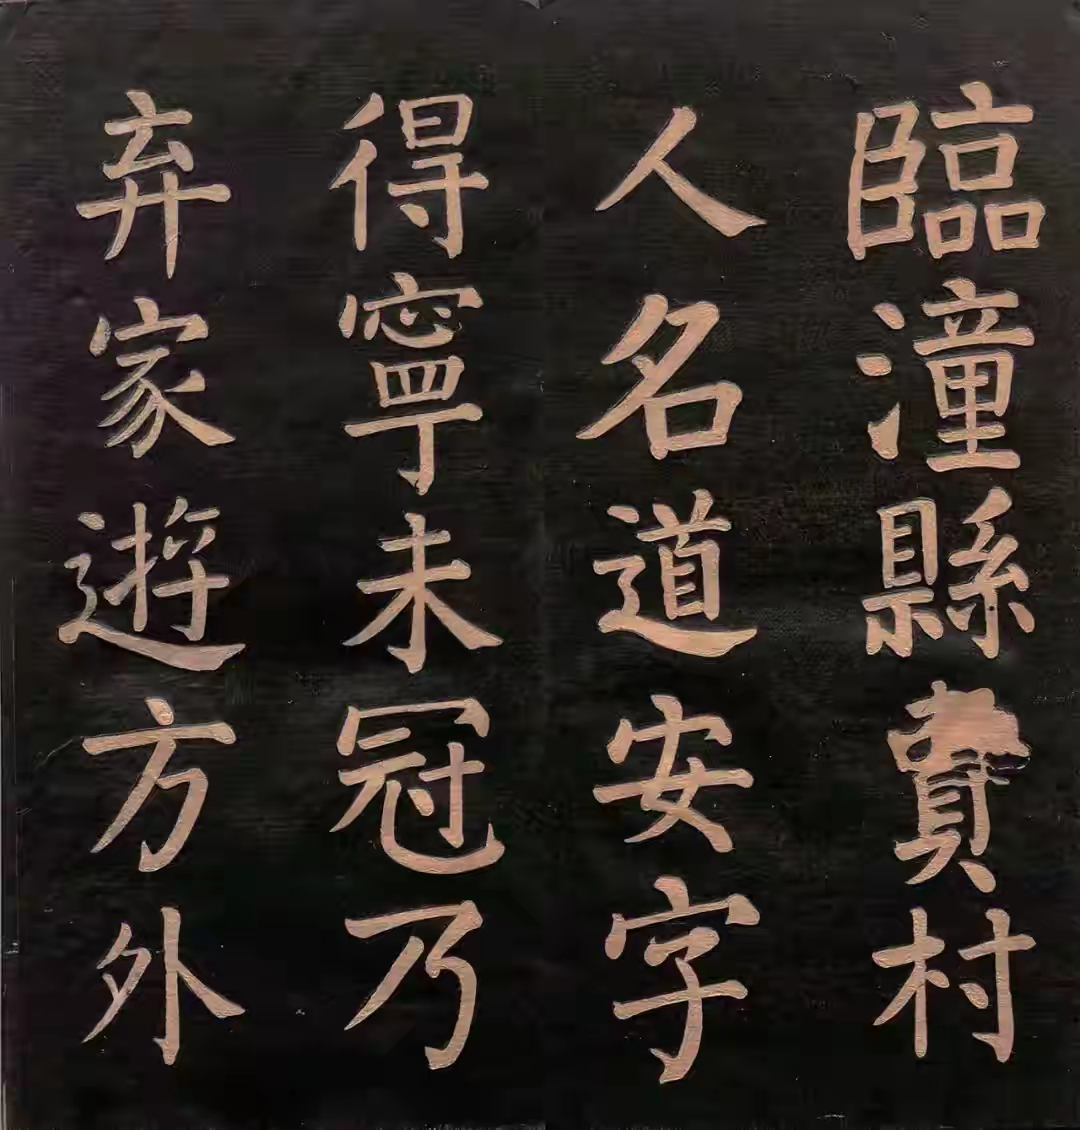 臨潼縣村
人名道安字
得寧未冠乃
弃家遊方外